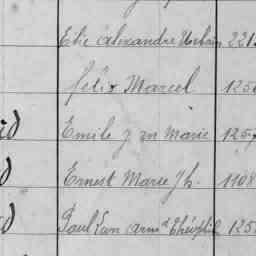 Elie Alexandre Urbain 221
felix Marcel 125
id Emile J en Marie 125
d Ernest Marie Jh. 1108
d Paul Armd Théophile 125